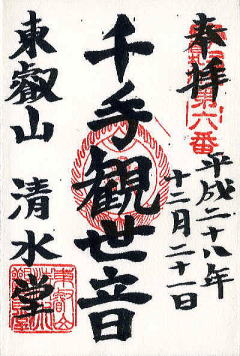 奉拝
第六番
平成二十八年
十二月二十一日
千手観世音
東叡山 清水堂